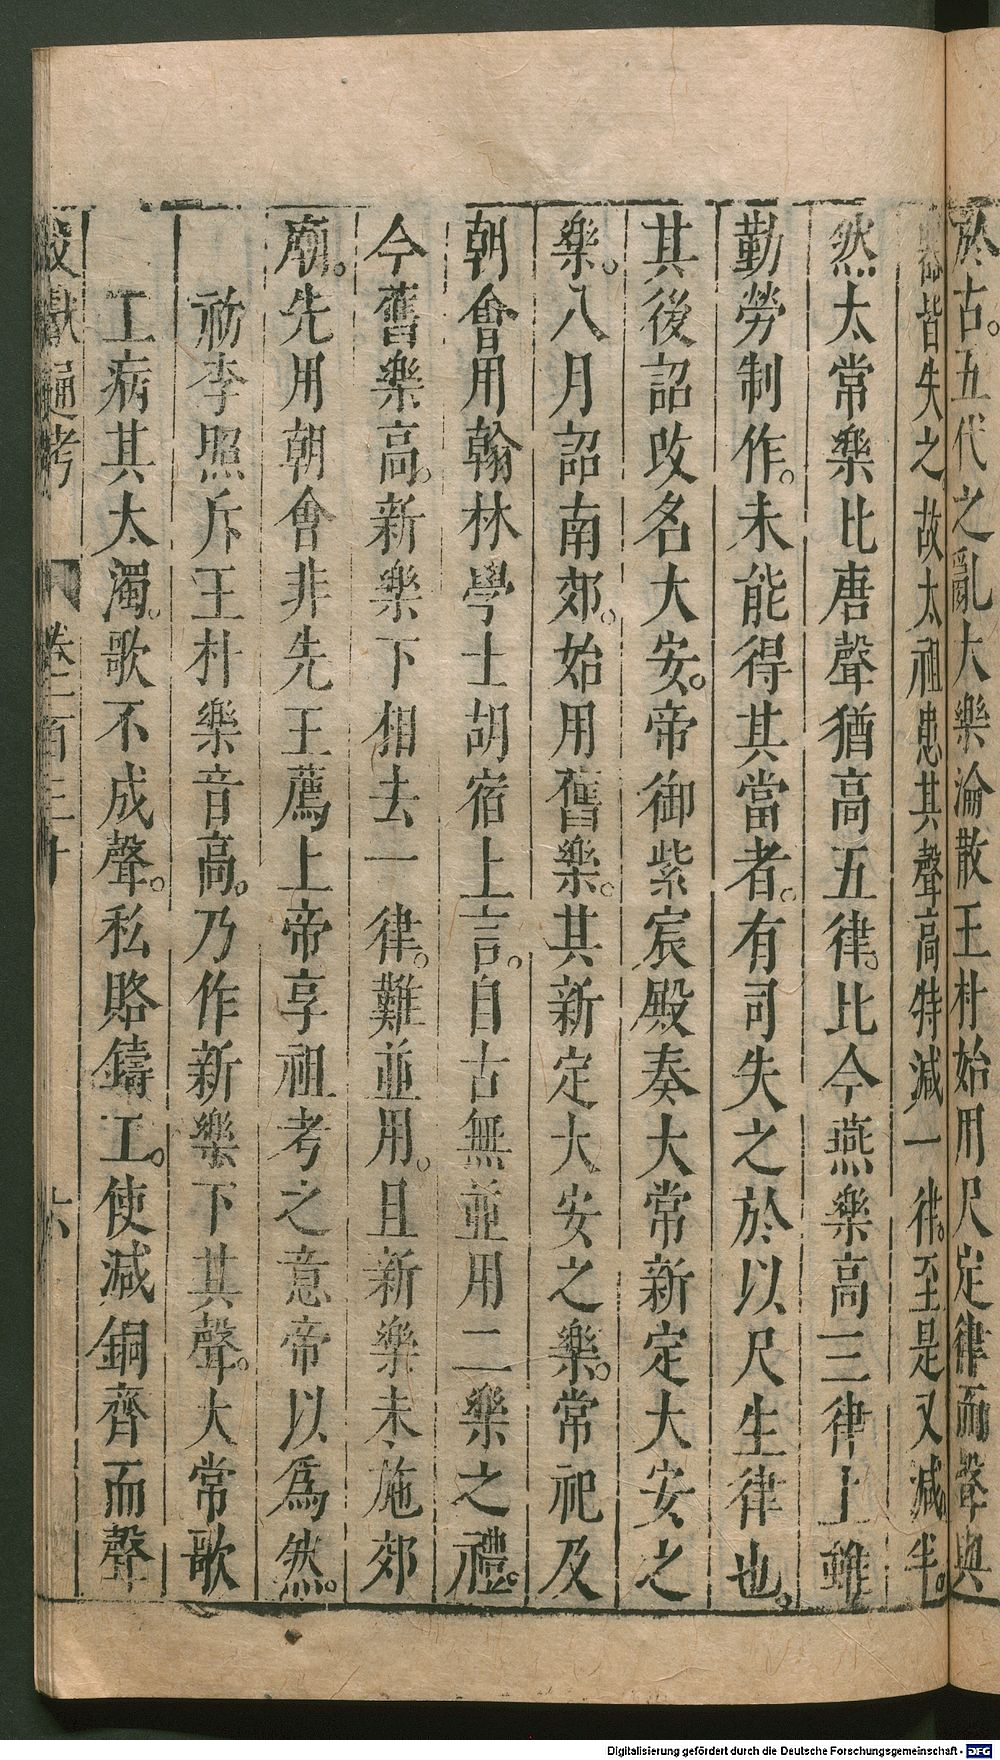 於古五代之亂大樂淪散王朴始用尺定律而聲與
器皆失之故太祖患其聲高特減一律至是又減半
然太常樂比唐聲猶高五律比今燕樂高三律上雖
勤勞制作未能得其當者有司失之於以尺生律也
其後詔改名大安帝御紫宸殿奏大常新定大安之
樂八月詔南郊始用舊樂其新定大安之樂常祀及
朝會用翰林學士胡宿上言自古無並用二樂之禮
今舊樂高新樂下相去一律難並用且新樂未施郊
廟先用朝會非先王薦上帝享祖考之意帝以爲然
礽李照斥王朴樂音高乃作新樂下其聲大常歌
工病其太濁歌不成聲私賂鑄工使減銅齊而聲
文獻通考 卷一百三十 六
Digitalisierung gefördert durch die Deutsche Forschungsgemeinschaft - DFG